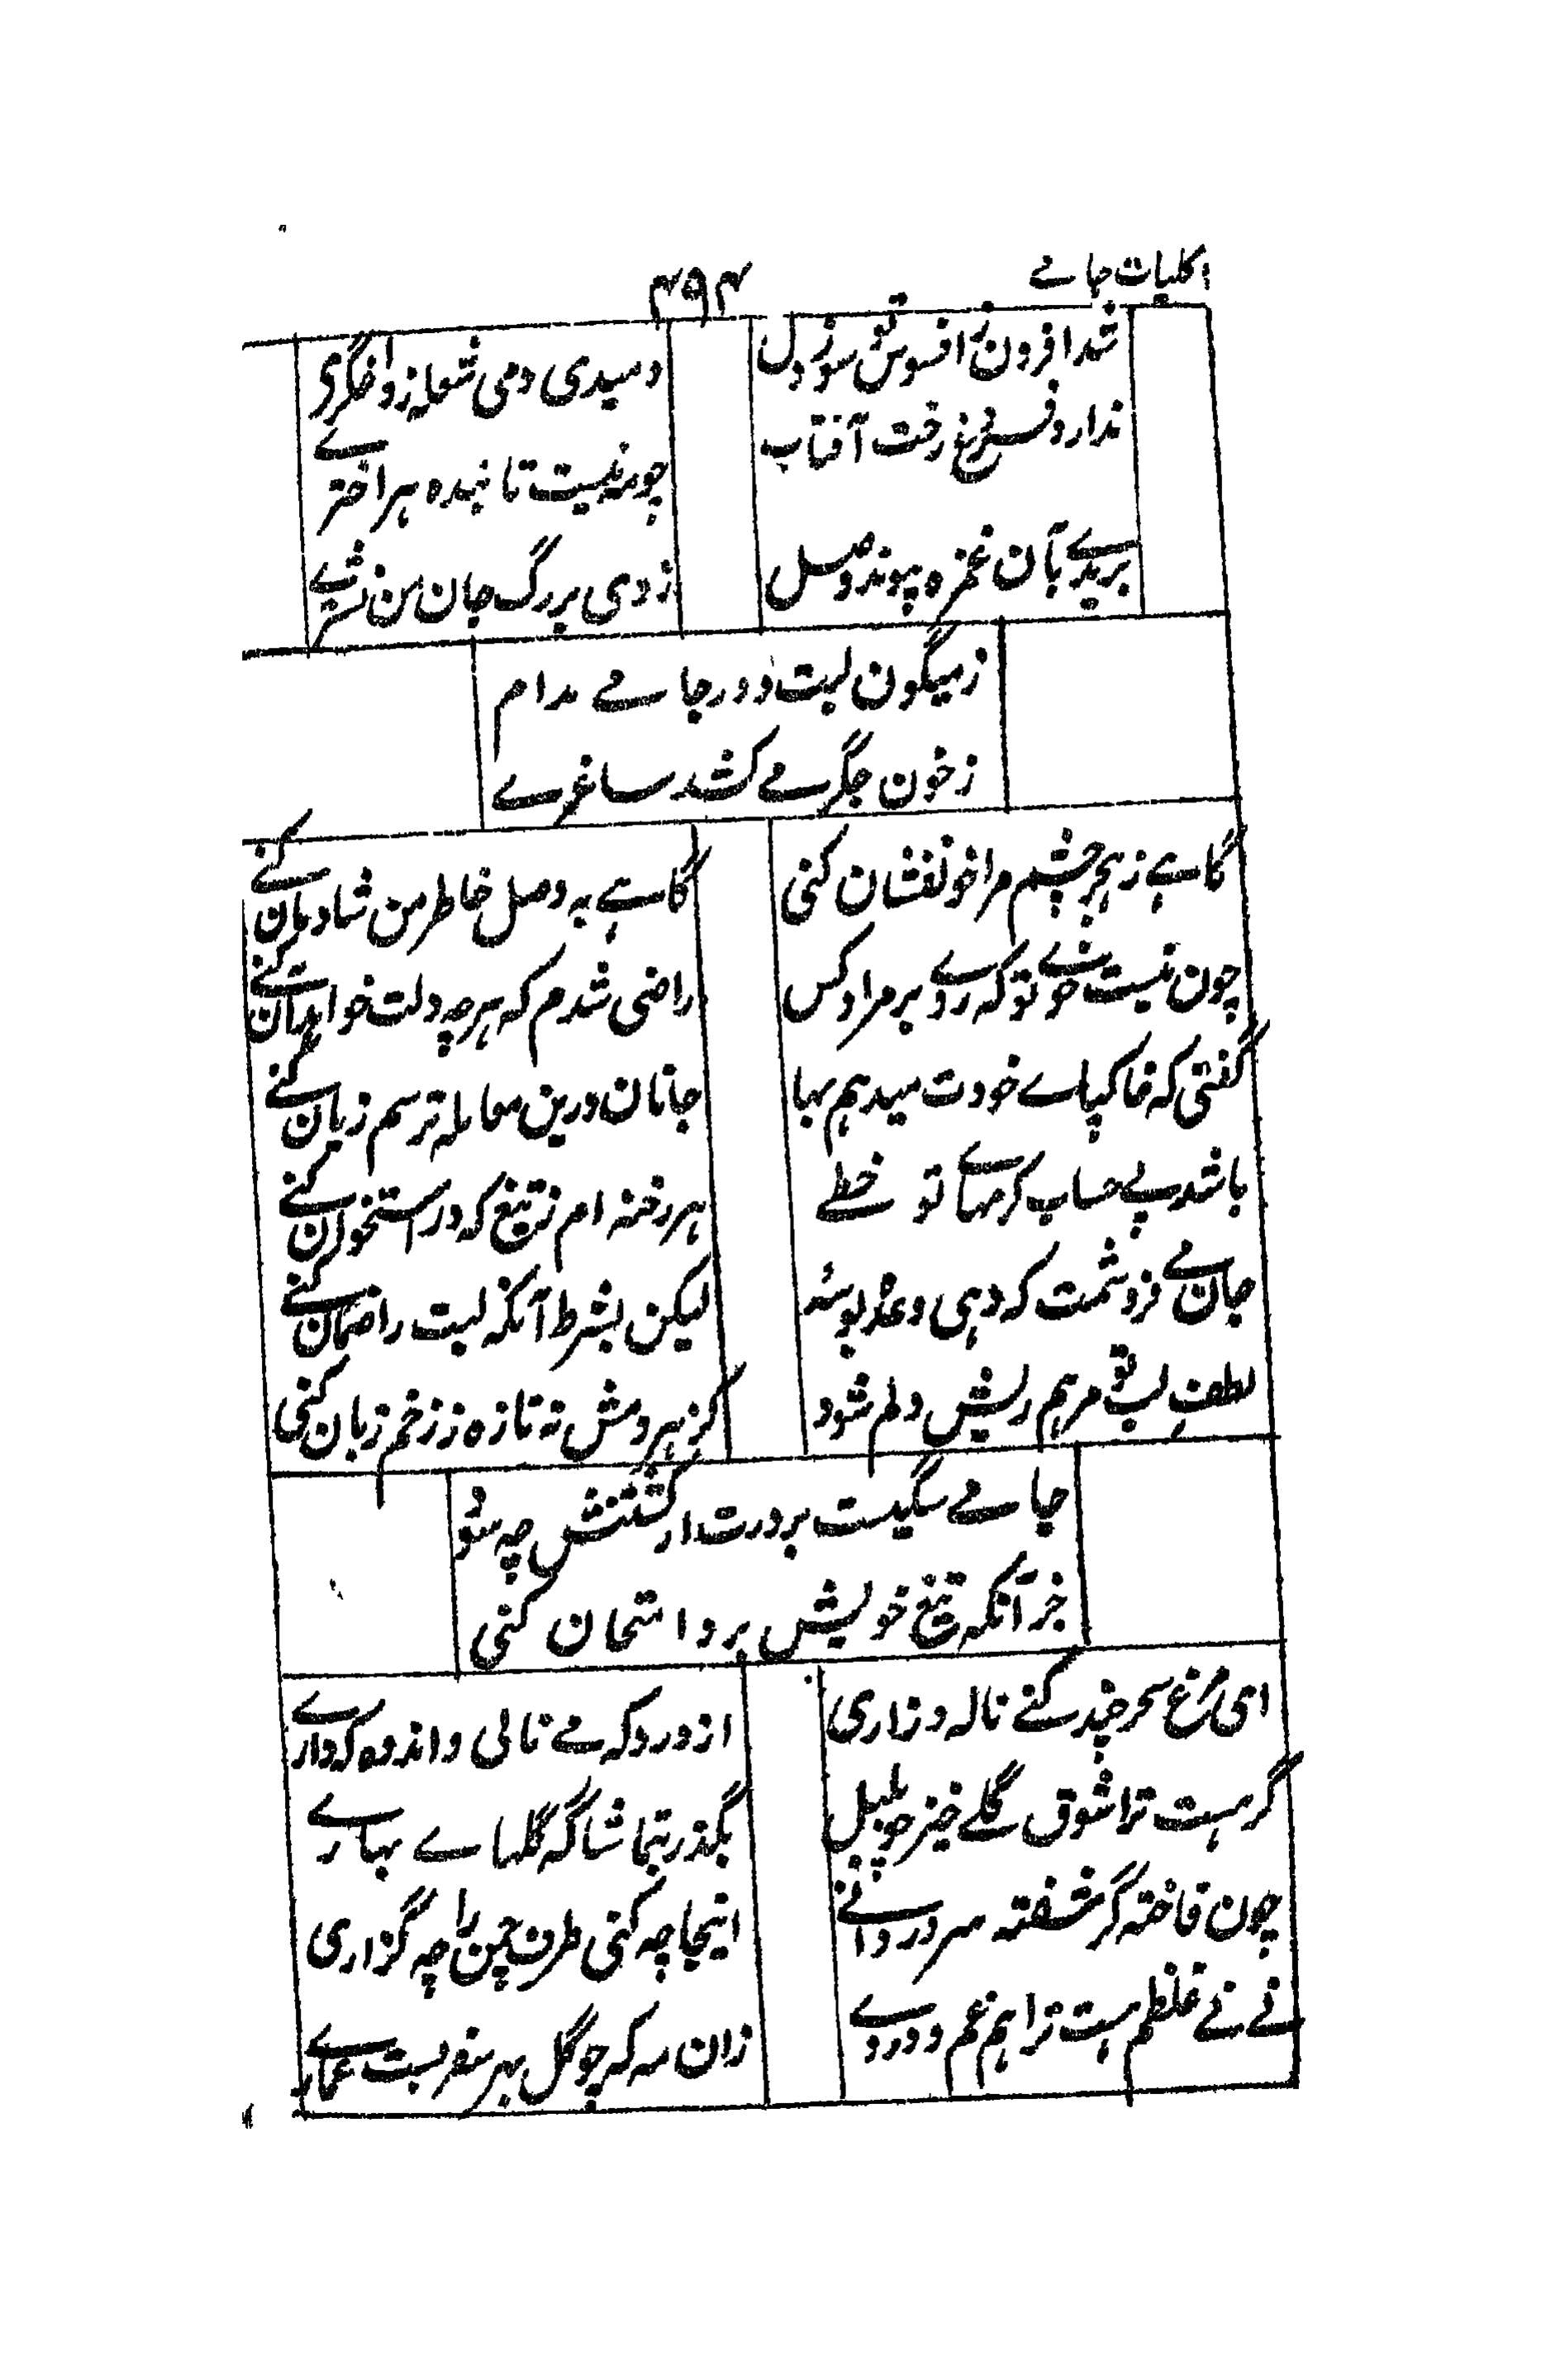 کلیات جامے
۴۹۴
شد افزون ز افسوس تو سوز دل
دمیدی دمی شعله زد اخگری
ندارد فروغ رخت آفتاب
چو مه نیست تابنده هر اخترے
بریدے بآن غمزه پیوند وصل
زدی بر رگ جان من نشترے
ز میگون لبت دور جامے مدام
ز خون جگر مے کشد ساغرے
گاہے ز ہجر چشم مرا خونفشان کنی
گاہے به وصل خاطر من شادمان کنے
چون نیست خوے تو که روے بر مراد کس
راضی شدم که هرچه دلت خواهد آن کنے
گفتی که خاکپاے خودت میدهم بہا
جانان درین معامله ترسم زیان کنے
باشد پے حساب کرمہاے تو خطے
هر رخنه ام ز تیغ که در استخوان کنے
جان مے فروشمت که دہی وعدۂ بوسۂ
لیکن بشرط آنکه لبت را ضمان کنے
لطف لب تو مرہم ریش دلم شود
گر ہر دمش نه تازه ز زخم زبان کنی
جامے سگیست بر درت از کشتنش چه سود
جز آنکه تیغ خویش برو امتحان کنی
ای مرغ سحر چند کنے ناله و زاری
از درد که مے نالی و اندوه که دارے
گر ہست ترا شوق گلے خیز چو بلبل
بگذر بتماشاگه گلہاے بہارے
چون فاخته گر شیفته سرو روانے
اینجا چه کنی طرف چمن را چه گزاری
نے نے غلطم ہست ترا ہم غم و دردے
زان مه که چو گل بہر سفر بست عمارے